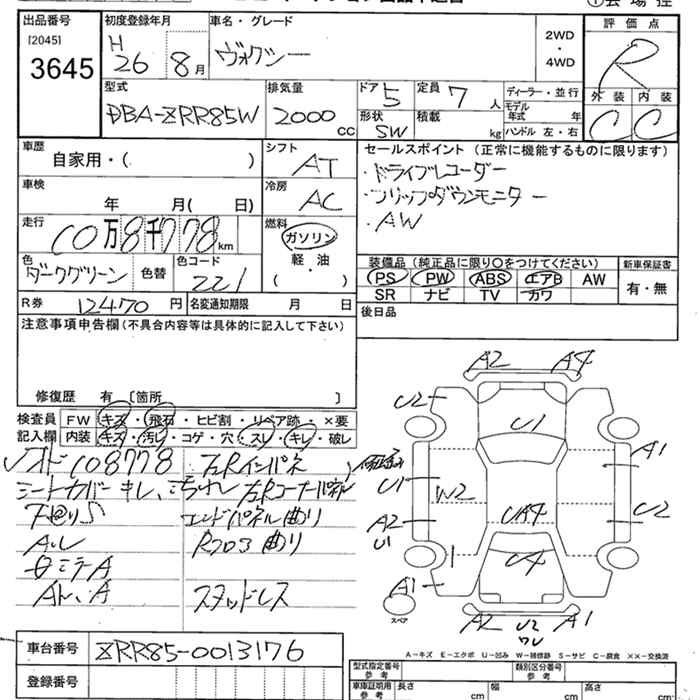 出品番号
[2045]
3645
初度登録年月
H 26 8月
車名・グレード
ヴォクシー
2WD
・
4WD
評価点
R
外装 内装
C C
型式
DBA-ZRR85W
排気量
2000 CC
ドア 5
形状 SW
定員 7 人
積載 kg
ディーラー・並行
モデル年式 年
ハンドル 左・右
車歴
自家用・( )
シフト
AT
セールスポイント(正常に機能するものに限ります)
・ドライブレコーダー
・フリップダウンモニター
・AW
車検
年 月( 日)
冷房
AC
走行
10万8千778km
燃料
ガソリン
軽・油
( )
色
ダークグリーン
色替
色コード
221
装備品(純正品に限り○をつけてください)
新車保証書
PS PW ABS エアB AW
SR ナビ TV カワ
有・無
R券 12470円
名変通知期限 月 日
後日品
注意事項申告欄(不具合内容等は具体的に記入して下さい)
修復歴 有 [箇所 ]
検査員記入欄
FW キズ・飛石・ヒビ割・リペア跡・×要
内装 キズ・汚レ・コゲ・穴・スレ・キレ・破レ
108778
シートカバーキレ、
エンドパネル曲り
スタッドレス
A2 A4
U2
U1
A1
U1
W2
U2
A2
U1
UA4
U4
A1
スペア
A2 U2 A1
A-キズ E-エクボ U-凹み W-補修跡 S-サビ C-腐食 ××-交換済
車台番号
ZRR85-0013176
登録番号
型式指定番号 参考
類別区分番号 参考
車庫証明用 参考
長さ cm
幅 cm
高さ cm